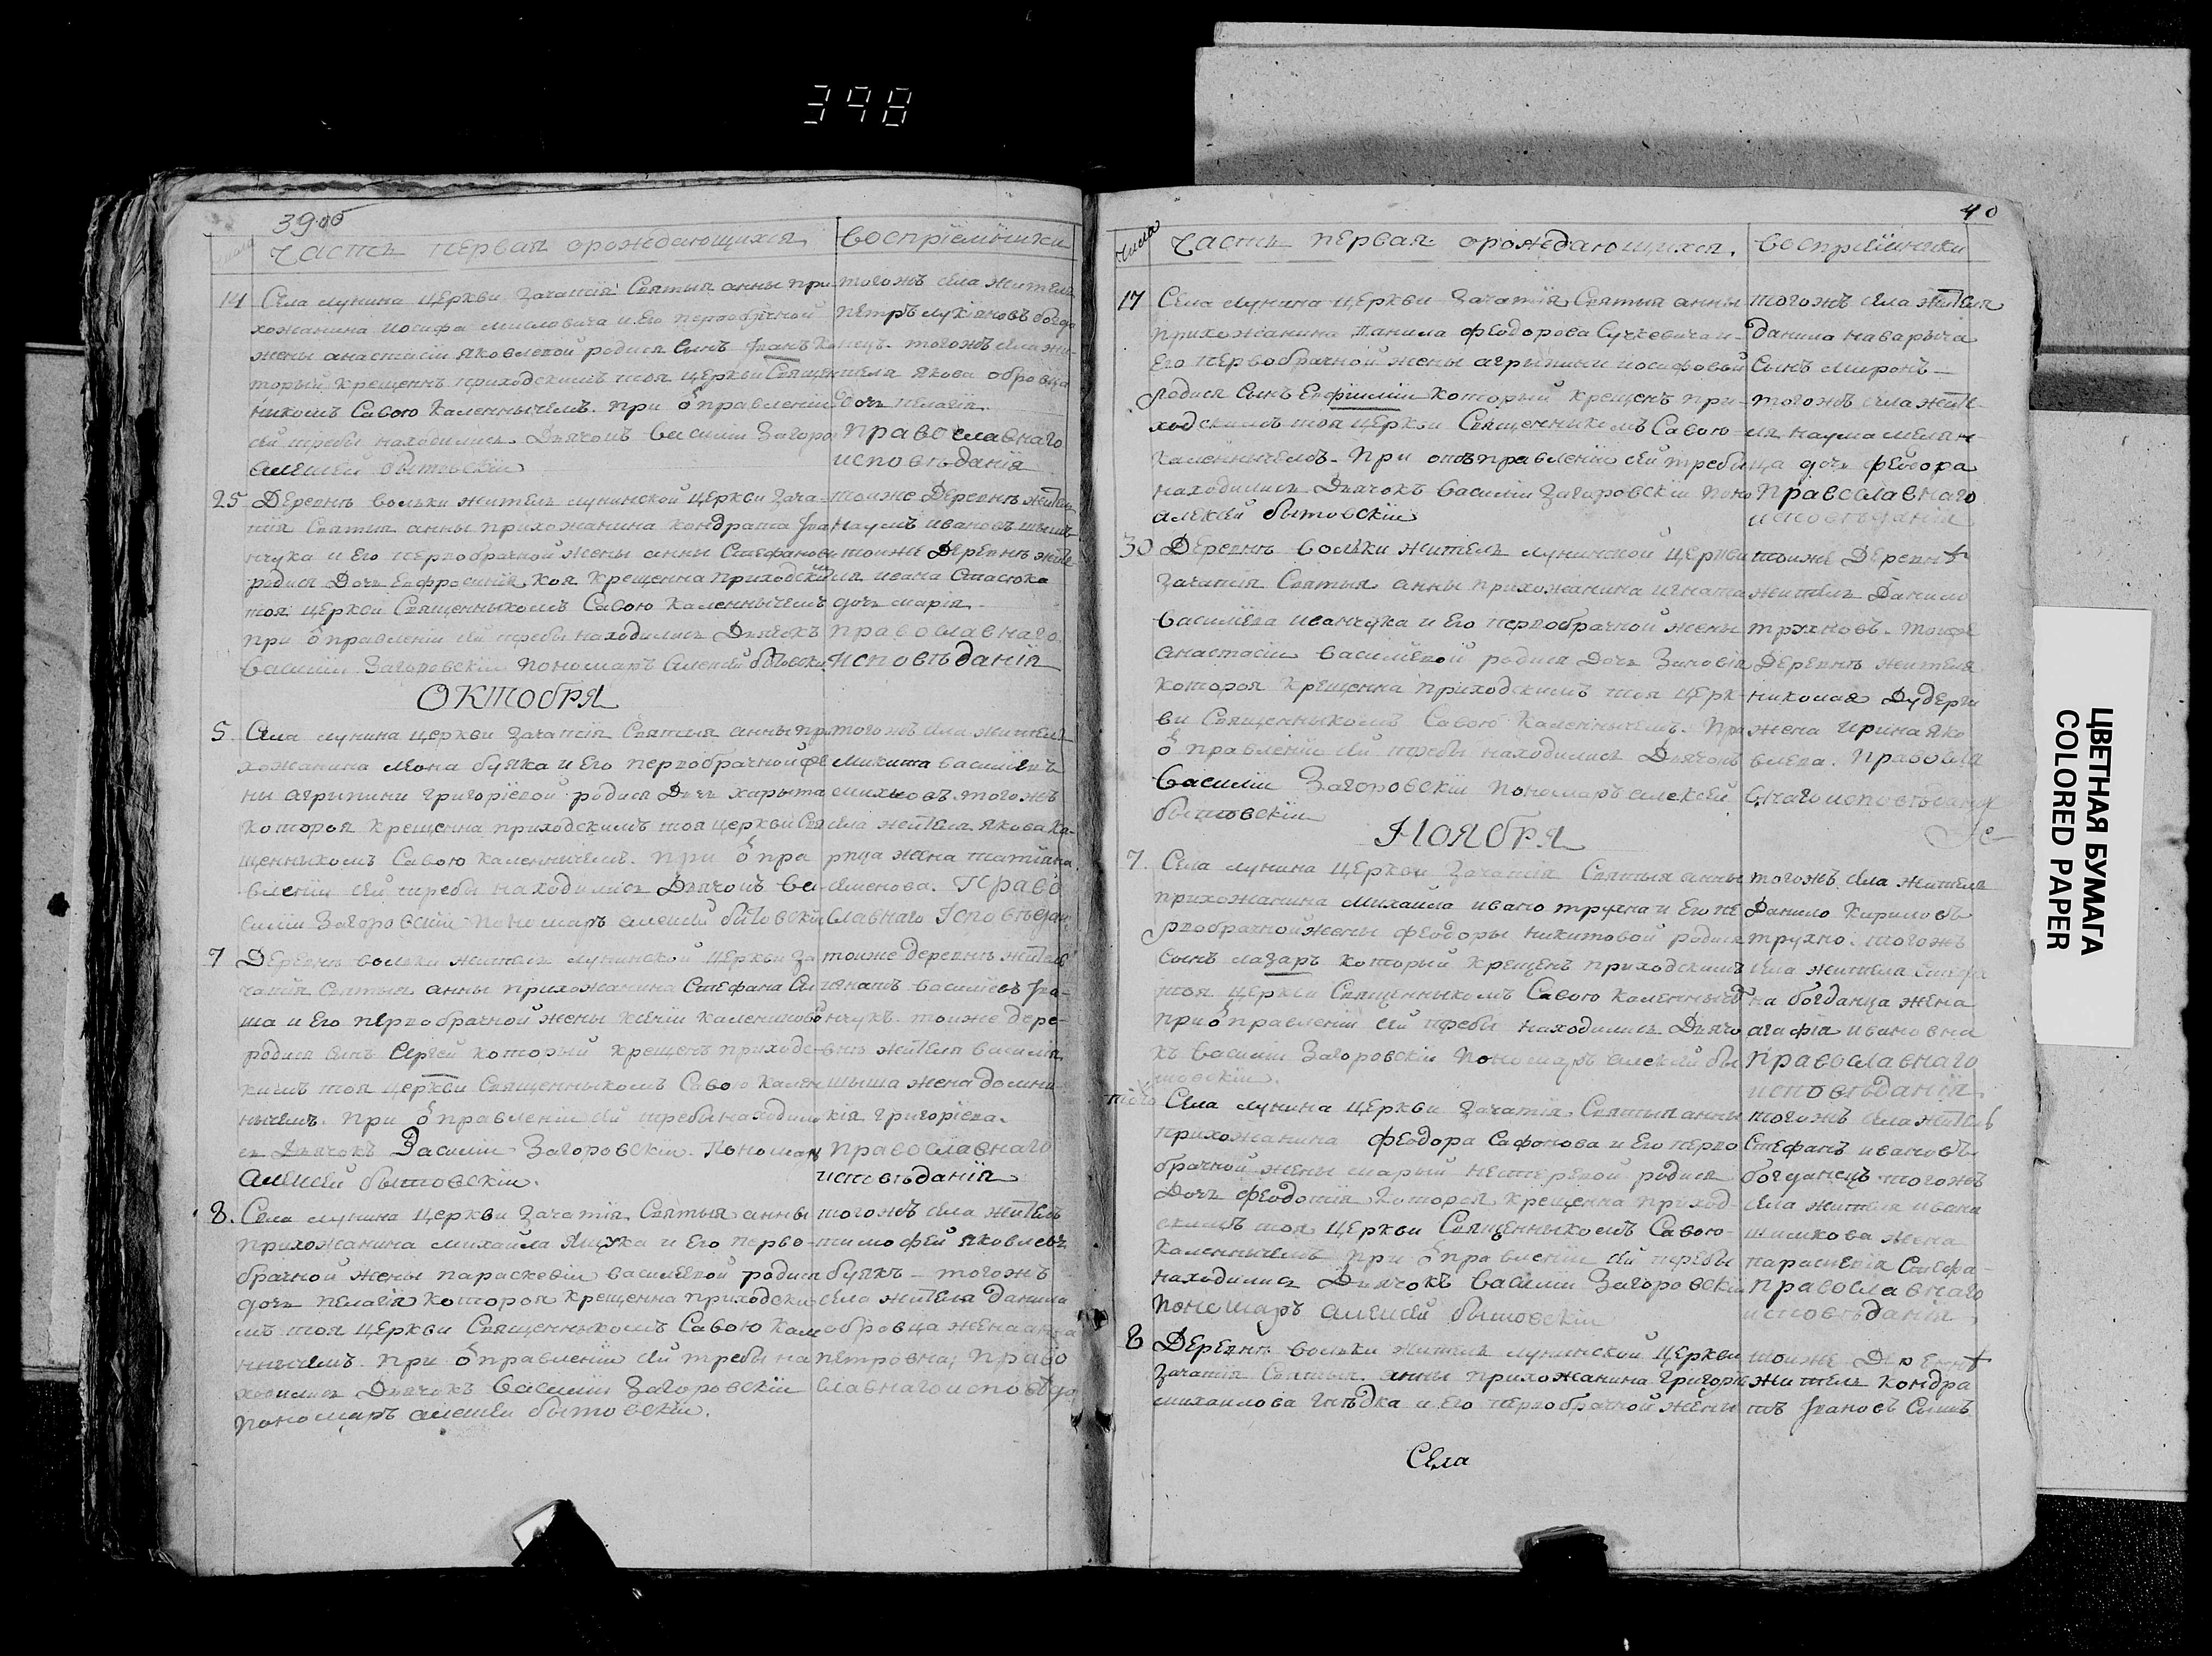 398
39об
Часть первая ораждающихся
Воспрiемники
14
Села лунина церкви Зачатiя Святыя анны при-
хожанина иосифа мисловича и Его первобрачной
жены анастасiи яковлевой родися Сынъ Iванъ ко-
торый крещенъ приходскимъ тоя церкви Священ
никомъ Савою каленнычемъ. при оправленiи
сей требы находились Дьячокъ василiи Загоро
алексей бытовскiи
тогожъ села жители
петръ лукiяновъ богда
нецъ. тогожъ села жи-
теля якова обровца
дочь пелагiя
православнаго
исповѣданiя
25
Деревнѣ вольки житель лунинской церкви Зача-
тiя Святыя анны прихожанина кондрата Iва
нчука и Его первобрачной жены анны Стефановы
родися Дочь Евфросинiя коя крещенна приходским
тоя церкви Священникомъ Савою каленнычемъ
при оправленiи сей требы находились Дьячокъ
василiи Загоровскiи пономаръ алексей бытовски
тоиже Деревнѣ жители
наумъ ивановъ
тоиже Деревнѣ жите
ля ивана Стасюка
дочь марiя
православнаго
исповѣданiя
ОКтобря
5
Села лунина церкви Зачатiя Святыя анны при
хожанина бунка и Его первобрачной же
ны агрипини григорiевой родися Дочь харыта
которая крещенна приходскимъ тоя церкви Свя
щенникомъ Савою каленничемъ. при опра
вленiи сей требы находились Дьячокъ ва-
силiи Загоровскiи пономаръ алексей бытовскiи
тогожъ села жители
микита василiевъ
михновъ. тогожъ
села жителя якова ка-
рпца жена татiана
семенова. Право
славнаго Iсповѣдан
7
Деревнѣ вольки житель лунинской церкви За
чатiя Святыя анны прихожанина Стефана Си
ша и Его первобрачной жены ксенiи калениковой
родися сынъ Сергей который крещенъ приходс-
кимъ тоя церкви Священникомъ Савою кален
нычемъ. при оправленiи сей требы находили
сь Дьячокъ Василiи Загоровскiи. Пономаръ
алексей бытовскiи.
тоиже деревнѣ жители
игнатъ василiевъ Iва-
нчукъ. тоиже дере-
внѣ жителя василiя
шыша жена домни
кiя григорiева.
православнаго
исповѣданiя
8.
Села лунина церкви Зачатiя Святыя анны
прихожанина михайла ящука и Его перво-
брачной жены параскевiи василiевой родися
дочь пелагiя которая крещенна приходски
мъ тоя церкви Священникомъ Савою кале
ннычемъ. при оправленiи сей требы на
ходились Дьячокъ василiи Загоровскiи
пономаръ алексей бытовскiи.
тогожъ села жители
тимофей яковлевъ
бункъ – тогожъ
села жителя данила
обровца жена анна
петровна; право
славнаго исповѣда
40
числа
Часть первая ораждающихся.
Воспрiемники
17
Села лунина церкви Зачатiя Святыя анны
прихожанина данила феодорова Сучкевича и-
Его первобрачной жены агрыпини иосифовой
родися Сынъ Евфимiи который крещенъ при-
ходскимъ тоя церкви Священникомъ Савою-
каленнычемъ. при отправленiи сей требы
находились Дьячокъ василiи Загоровскiи поно
алексей бытовскiи
тогожъ села жителя
данила наварыча
Сынъ миронъ –
тогожъ села жите-
ля наума мелян-
ца дочь феодора
православнаго
исповѣданiя
30
Деревнѣ вольки житель лунинской церкви
зачатiя Святыя анны прихожанина игната
василiева иванчука и Его первобрачной жены
анастасiи василiевой родися Дочь Зиновiя
которая крещенна приходскимъ тоя церк-
ви Священникомъ Савою каленнычемъ. При
оправленiи сей требы находились Дьячокъ
василiи Загоровскiи пономаръ алексей
бытовскiи
тоиже Деревнѣ
житель Данило
трухновъ. тоиже
Деревнѣ жителя
николая Дудерги
жена ирина яко
влева. Правосла
внаго исповѣданiя
Ноября
7.
Села лунина церкви Зачатiя Святыя анны
прихожанина михаила ивано трухна и Его пе
рвобрачной жены феодоры никитовой родися
сынъ лазаръ который крещенъ приходскимъ
тоя церкви Священникомъ Савою каленныче
при оправленiи сей требы находились Дьячо
къ василiи Загоровскiи пономаръ алексей бы
товскiи.
тогожъ села жители
Данило кириловъ
трухно. тогожъ
села жителя Стефа
на богданца жена
агафiя ивановна
православнаго
исповѣданiя.
тогo
Села лунина церкви Зачатiя Святыя анны
прихожанина феодора Сафонова и Его перво
брачной жены марыи нестеревой родися
Дочь феодотiя которая крещенна приход
скимъ тоя церкви Священникомъ Савою-
каленнычемъ при оправленiи сей требы
находились Дьячокъ василiи Загоровскiи
пономаръ алексей бытовскiи
тогожъ села житель
Стефанъ ивановъ
богданецъ тогожъ
села жителя ивана
шишкова жена
параскевiя Стефа-
православнаго
исповѣданiя
8
Деревнѣ вольки житель лунинской церкви
Зачатiя Святыя анны прихожанина григорiя
михаилова гнѣдка и Его первобрачной жены
тоиже Деревнѣ
житель кондра
тъ Iвановъ Сынъ
Села
ЦВЕТНАЯ БУМАГА
COLORED PAPER